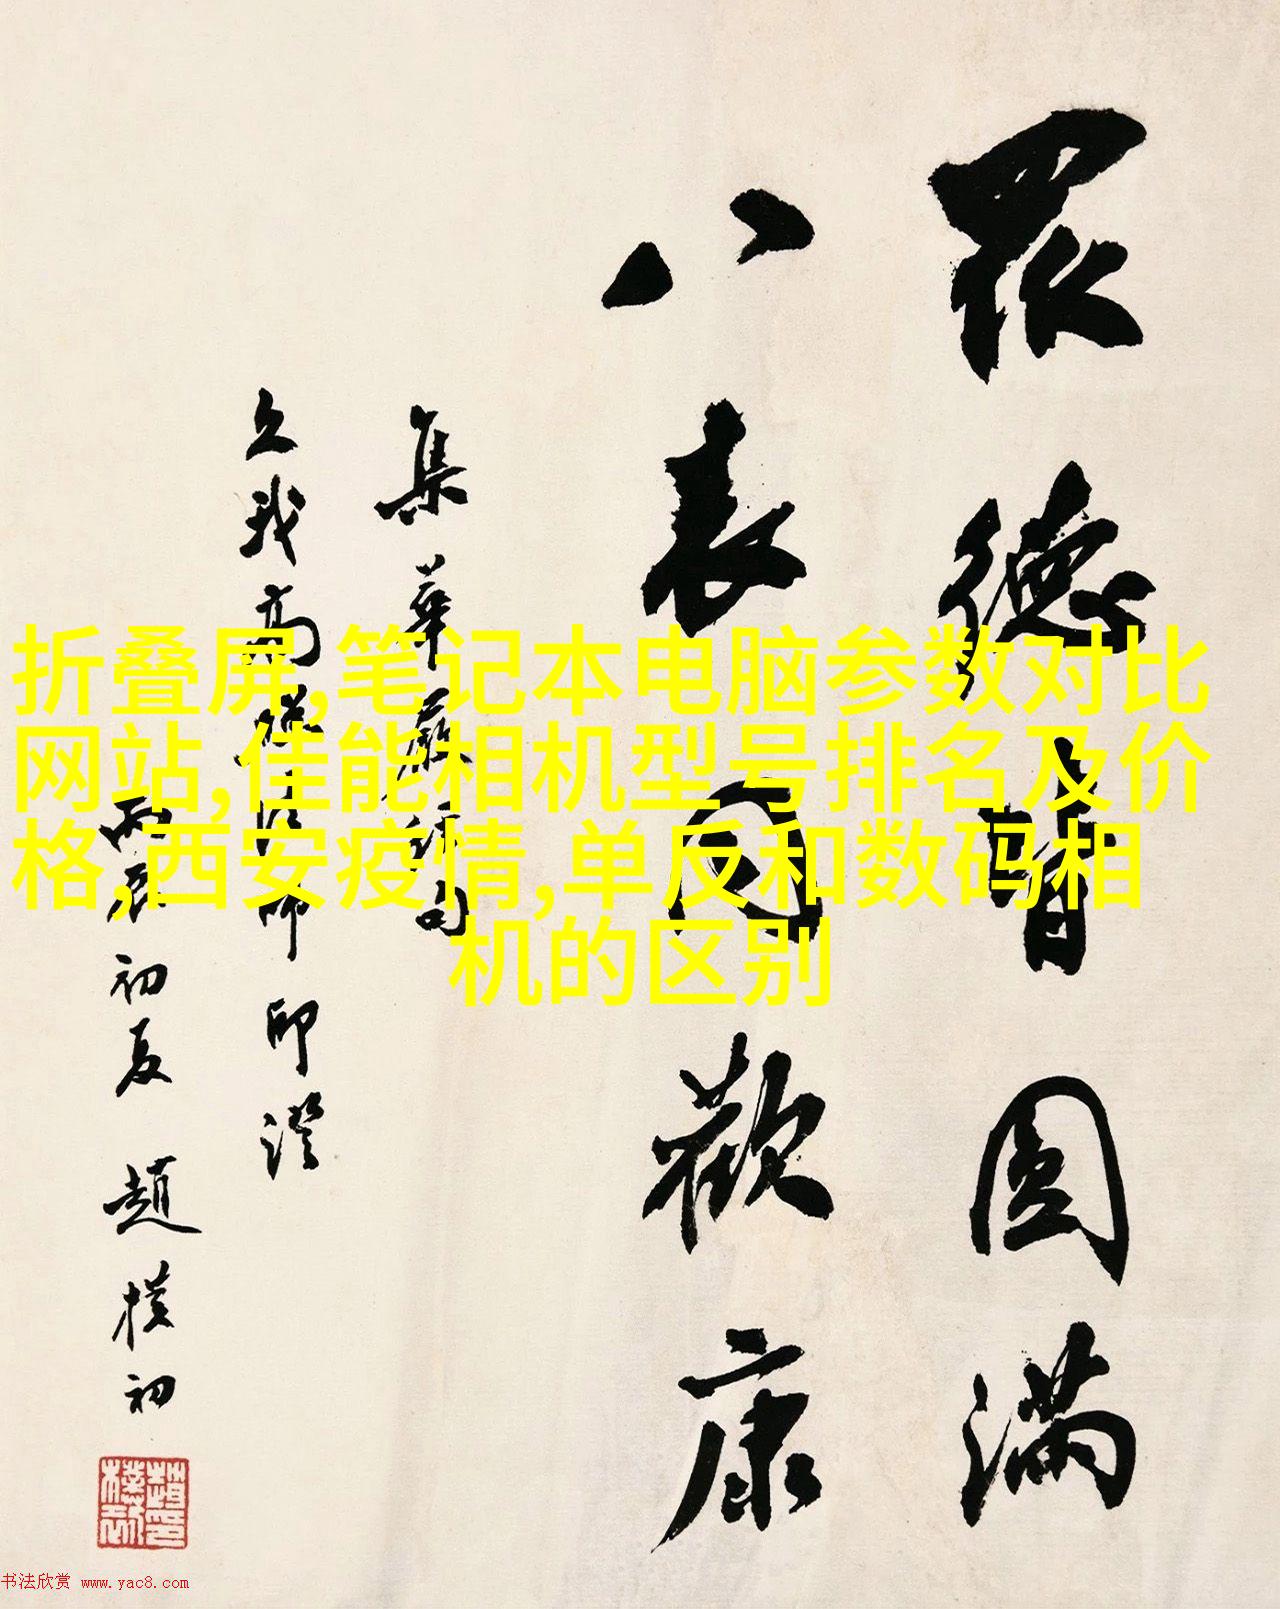 众德皆圆满
八表同欢康
集华严经句
久我高嵯法师印澄
丙辰初夏 赵朴初
折叠屏,笔记本电脑参数对比
网站,佳能相机型号排名及价
格,西安疫情,单反和数码相
机的区别
书法欣赏 www.yac8.com